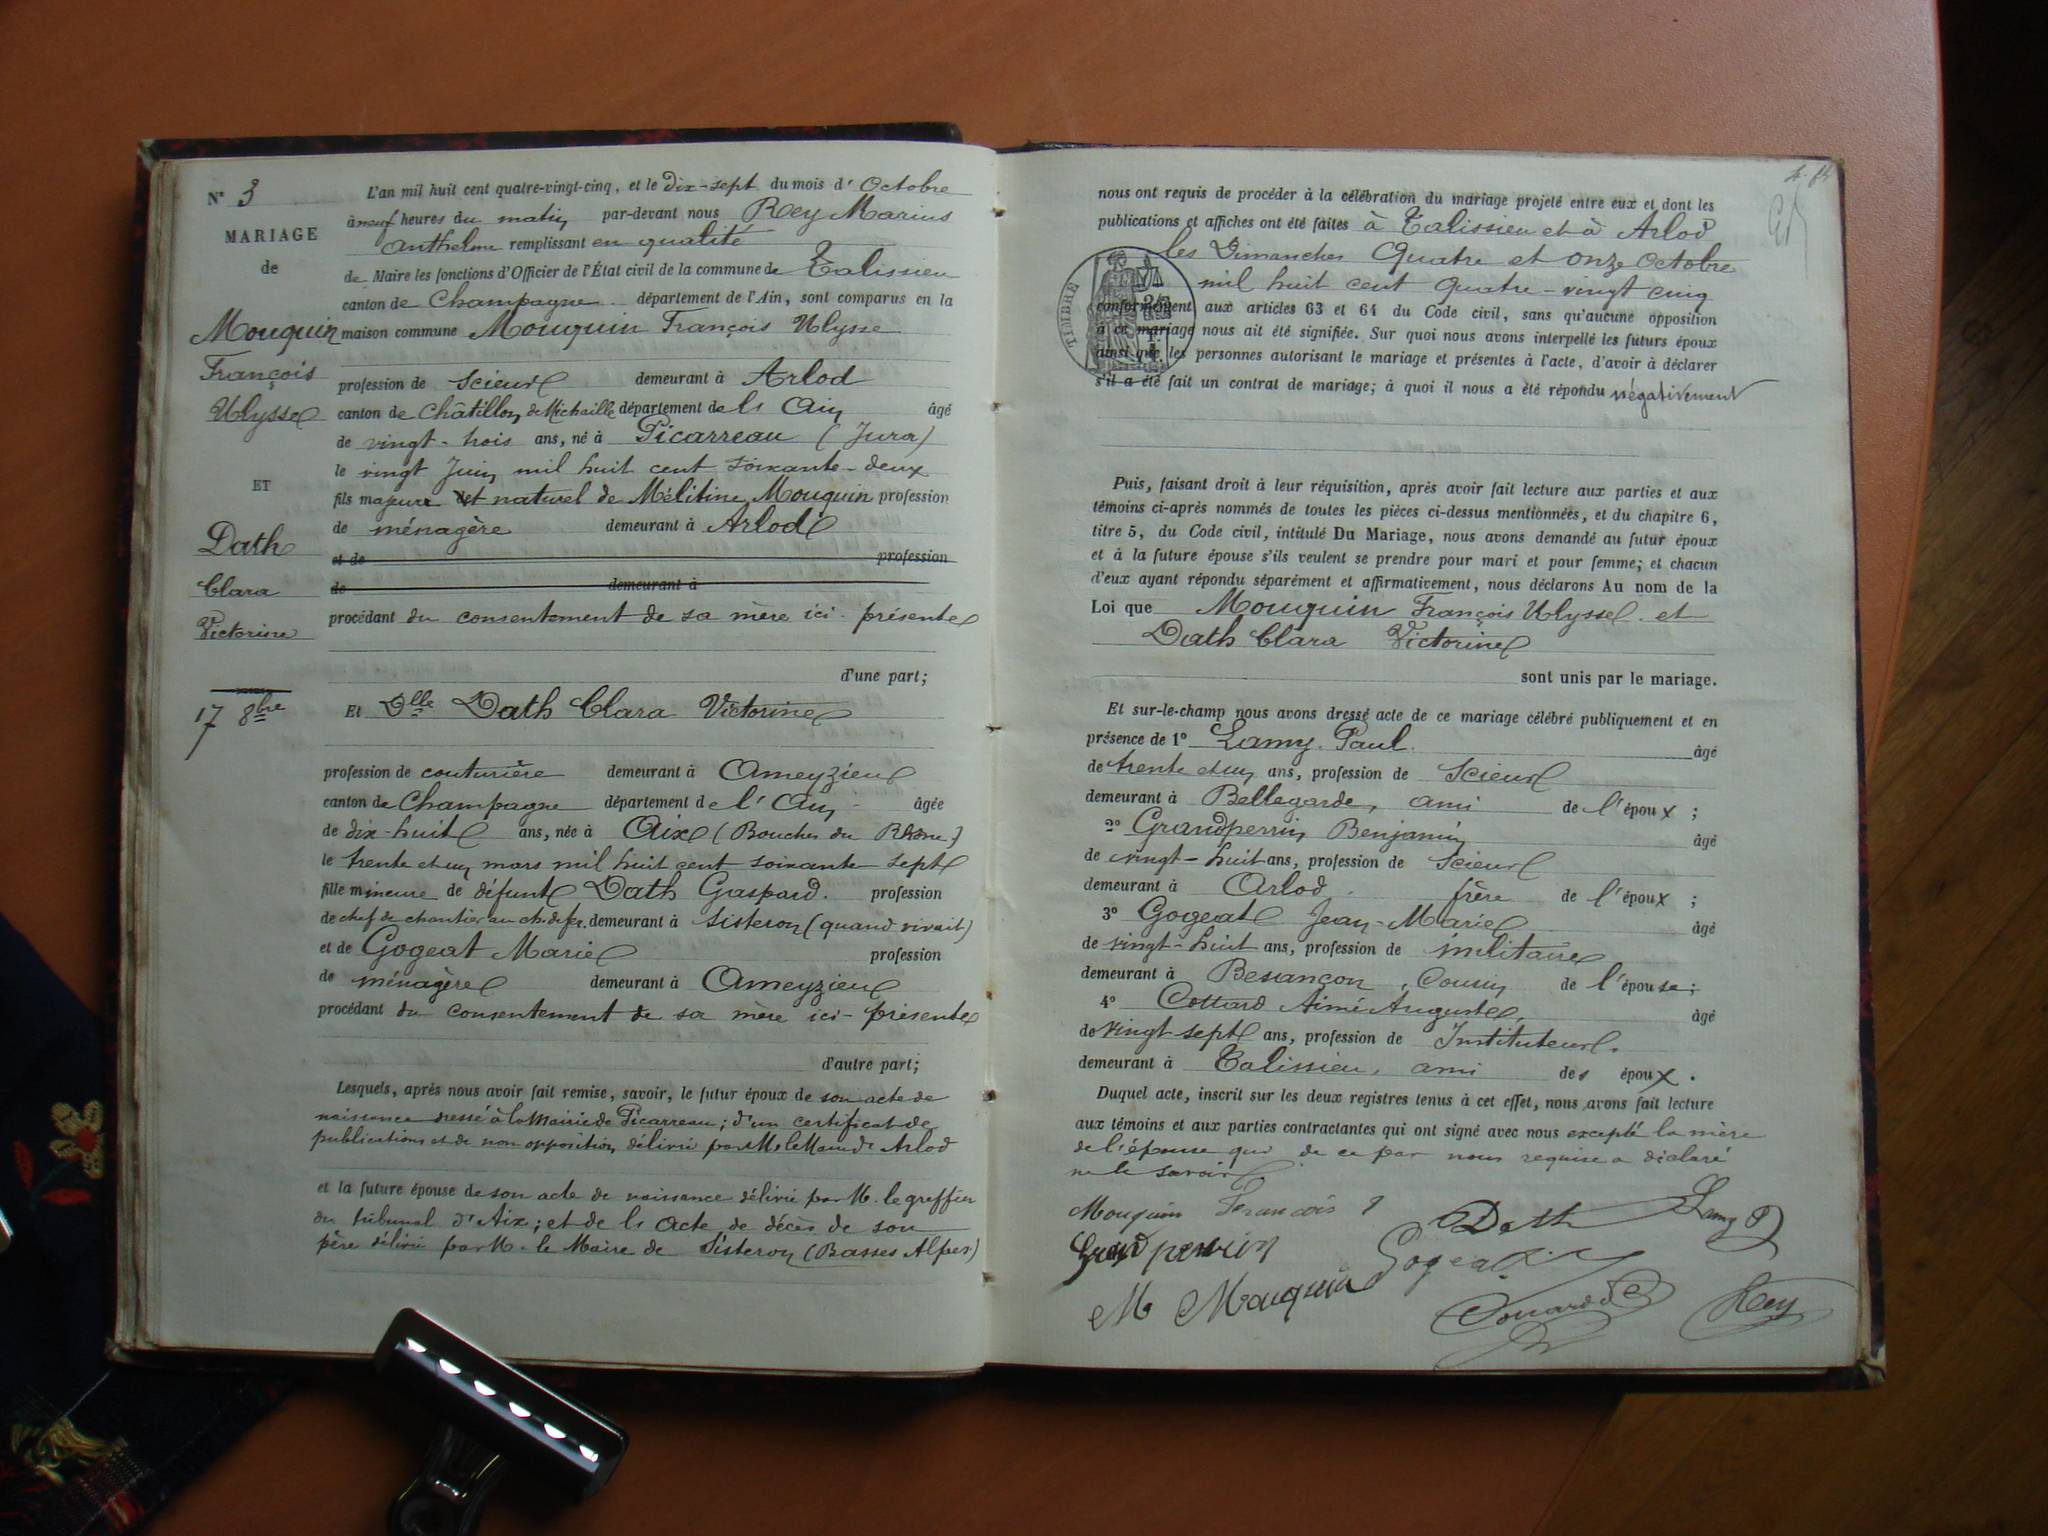 N° 3
MARIAGE
de
Mouquin
François
Ulysse
ET
Dath
Clara
Victorine
17 8bre
L'an mil huit cent quatre-vingt-cinq, et le dix-sept du mois d'Octobre
à neuf heures du matin par-devant nous Rey Marius
Anthelme remplissant en qualité
de Maire les fonctions d'Officier de l'État civil de la commune de Talissieu
canton de Champagne département de l'Ain, sont comparus en la
maison commune Mouquin François Ulysse
profession de Scieur demeurant à Arlod
canton de Châtillon de Michaille département de l'Ain âgé
de vingt-trois ans, né à Picarreau (Jura)
le vingt Juin mil huit cent soixante-deux
fils majeur et naturel de Mélitine Mouquin profession
de ménagère demeurant à Arlod
et de profession
de demeurant à
procédant du consentement de sa mère ici présente
d'une part;
Et Dlle Dath Clara Victorine
profession de couturière demeurant à Ameyzieu
canton de Champagne département de l'Ain âgée
de dix-huit ans, née à Aix (Bouches du Rhône)
le trente et un mars mil huit cent soixante sept
fille mineure de défunt Dath Gaspard profession
de chef de chantier au ch. de fer. demeurant à Sisteron (quand vivait)
et de Gogeat Marie profession
de ménagère demeurant à Ameyzieu
procédant du consentement de sa mère ici-présente
d'autre part;
Lesquels, après nous avoir fait remise, savoir, le futur époux de son acte de
naissance dressé à la Mairie de Picarreau; d'un certificat de
publications et de non opposition délivré par M. le Maire d'Arlod
et la future épouse de son acte de naissance délivré par M. le greffier
du tribunal d'Aix; et de l'acte de décès de son
père délivré par M. le Maire de Sisteron (Basses Alpes)
nous ont requis de procéder à la célébration du mariage projeté entre eux et dont les
publications et affiches ont été faites à Talissieu et à Arlod
les Dimanches Quatre et onze Octobre
mil huit cent Quatre-vingt cinq
TIMBRE
conformément aux articles 63 et 64 du Code civil, sans qu'aucune opposition
à ce mariage nous ait été signifiée. Sur quoi nous avons interpellé les futurs époux
ainsi que les personnes autorisant le mariage et présentes à l'acte, d'avoir à déclarer
s'il a été fait un contrat de mariage; à quoi il nous a été répondu négativement
Puis, faisant droit à leur réquisition, après avoir fait lecture aux parties et aux
témoins ci-après nommés de toutes les pièces ci-dessus mentionnées, et du chapitre 6,
titre 5, du Code civil, intitulé Du Mariage, nous avons demandé au futur époux
et à la future épouse s'ils veulent se prendre pour mari et pour femme; et chacun
d'eux ayant répondu séparément et affirmativement, nous déclarons Au nom de la
Loi que Mouquin François Ulysse et
Dath Clara Victorine
sont unis par le mariage.
Et sur-le-champ nous avons dressé acte de ce mariage célébré publiquement et en
présence de 1° Lamy Paul âgé
de trente et un ans, profession de Scieur
demeurant à Bellegarde, ami de l'époux;
2° Grandperrin Benjamin âgé
de vingt-huit ans, profession de Scieur
demeurant à Arlod frère de l'époux;
3° Gogeat Jean-Marie âgé
de vingt-huit ans, profession de militaire
demeurant à Besançon, Cousin de l'épouse;
4° Aimé Auguste, âgé
de vingt-sept ans, profession de Instituteur.
demeurant à Talissieu, ami des époux.
Duquel acte, inscrit sur les deux registres tenus à cet effet, nous avons fait lecture
aux témoins et aux parties contractantes qui ont signé avec nous excepté la mère
de l'épouse qui de ce par nous requise a déclaré
ne le savoir
Mouquin Francois
Dath
Lamy P
Grandperrin
Gogeat
M Mouquin
Rey